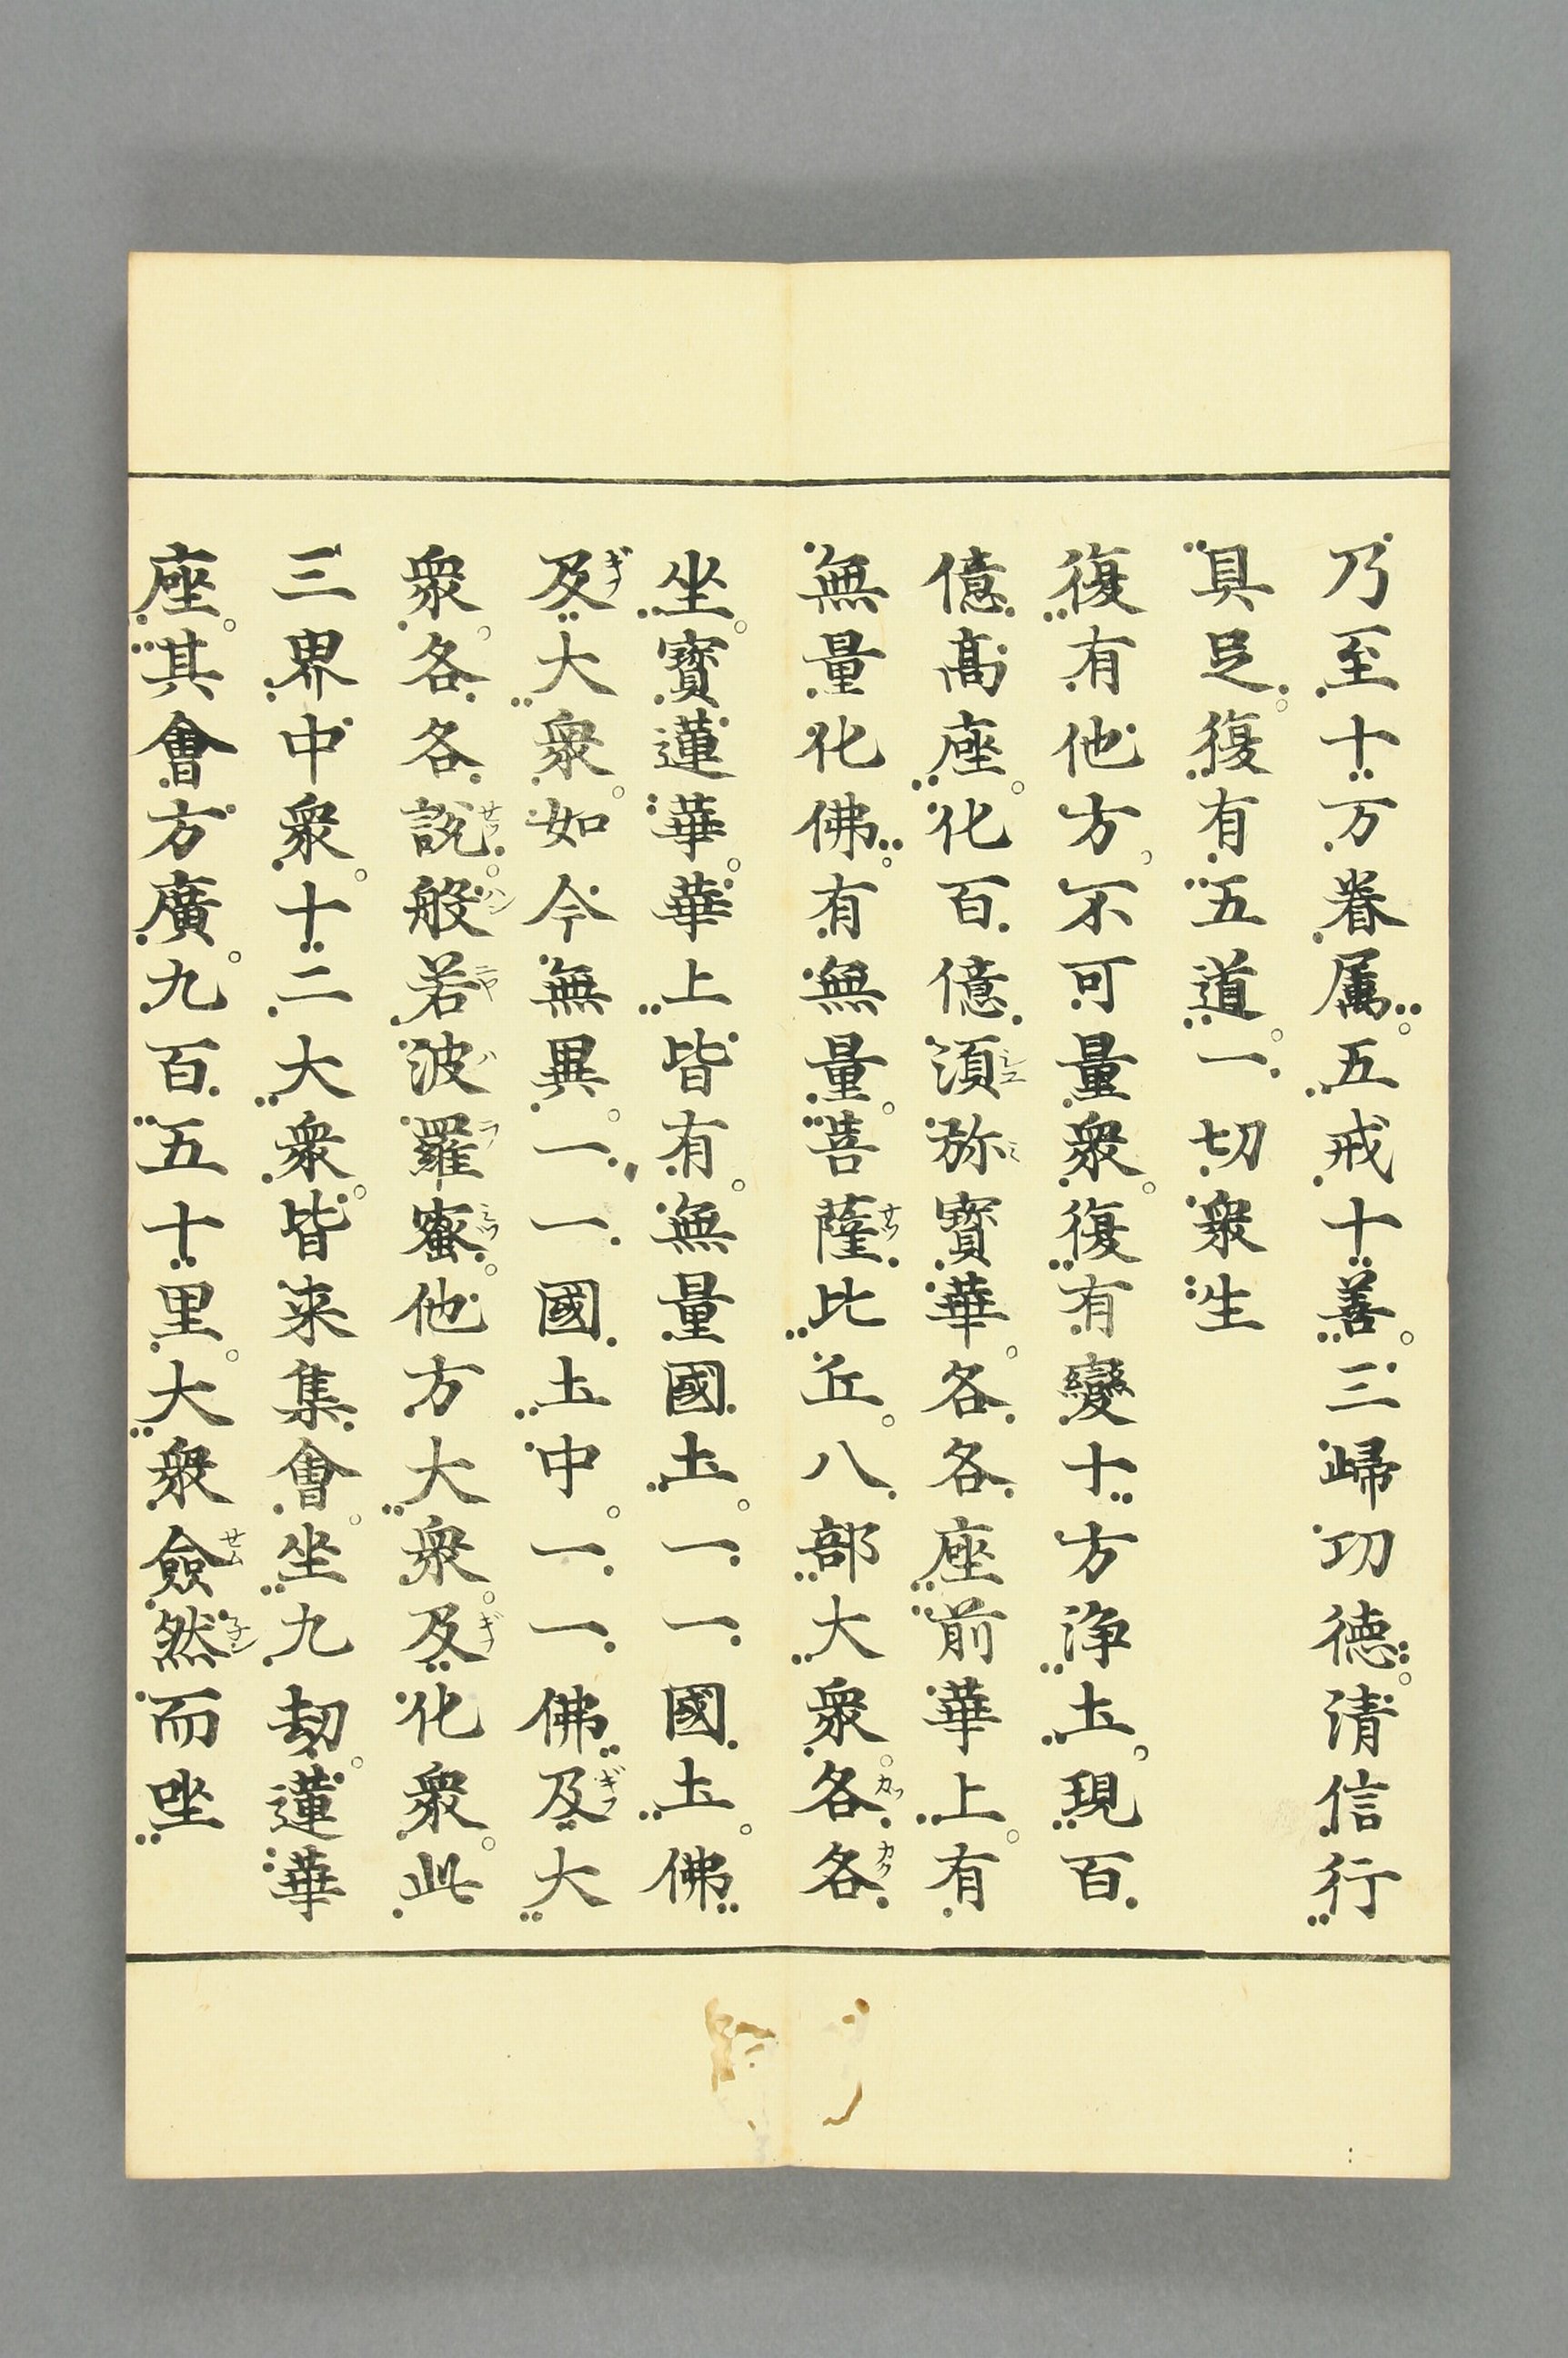 乃至十万眷属。五戒十善。三歸功徳。清信行
具足。復有五道。一切衆生
復有他方不可量衆。復有變十方浄土現百
億高座。化百億須弥寳華。各各座前華上。有
無量化佛。有無量。菩薩比丘。八部大衆。各各
坐。寳蓮華。華上皆有。無量國土。一一國土。佛
及大衆。如今無異。一一國土中。一一佛及大
衆。各各説。般若波羅蜜。他方大衆。及化衆。此
三界中衆。十二大衆。皆来集會。坐九劫。蓮華
座。其會方廣。九百五十里。大衆僉然而坐